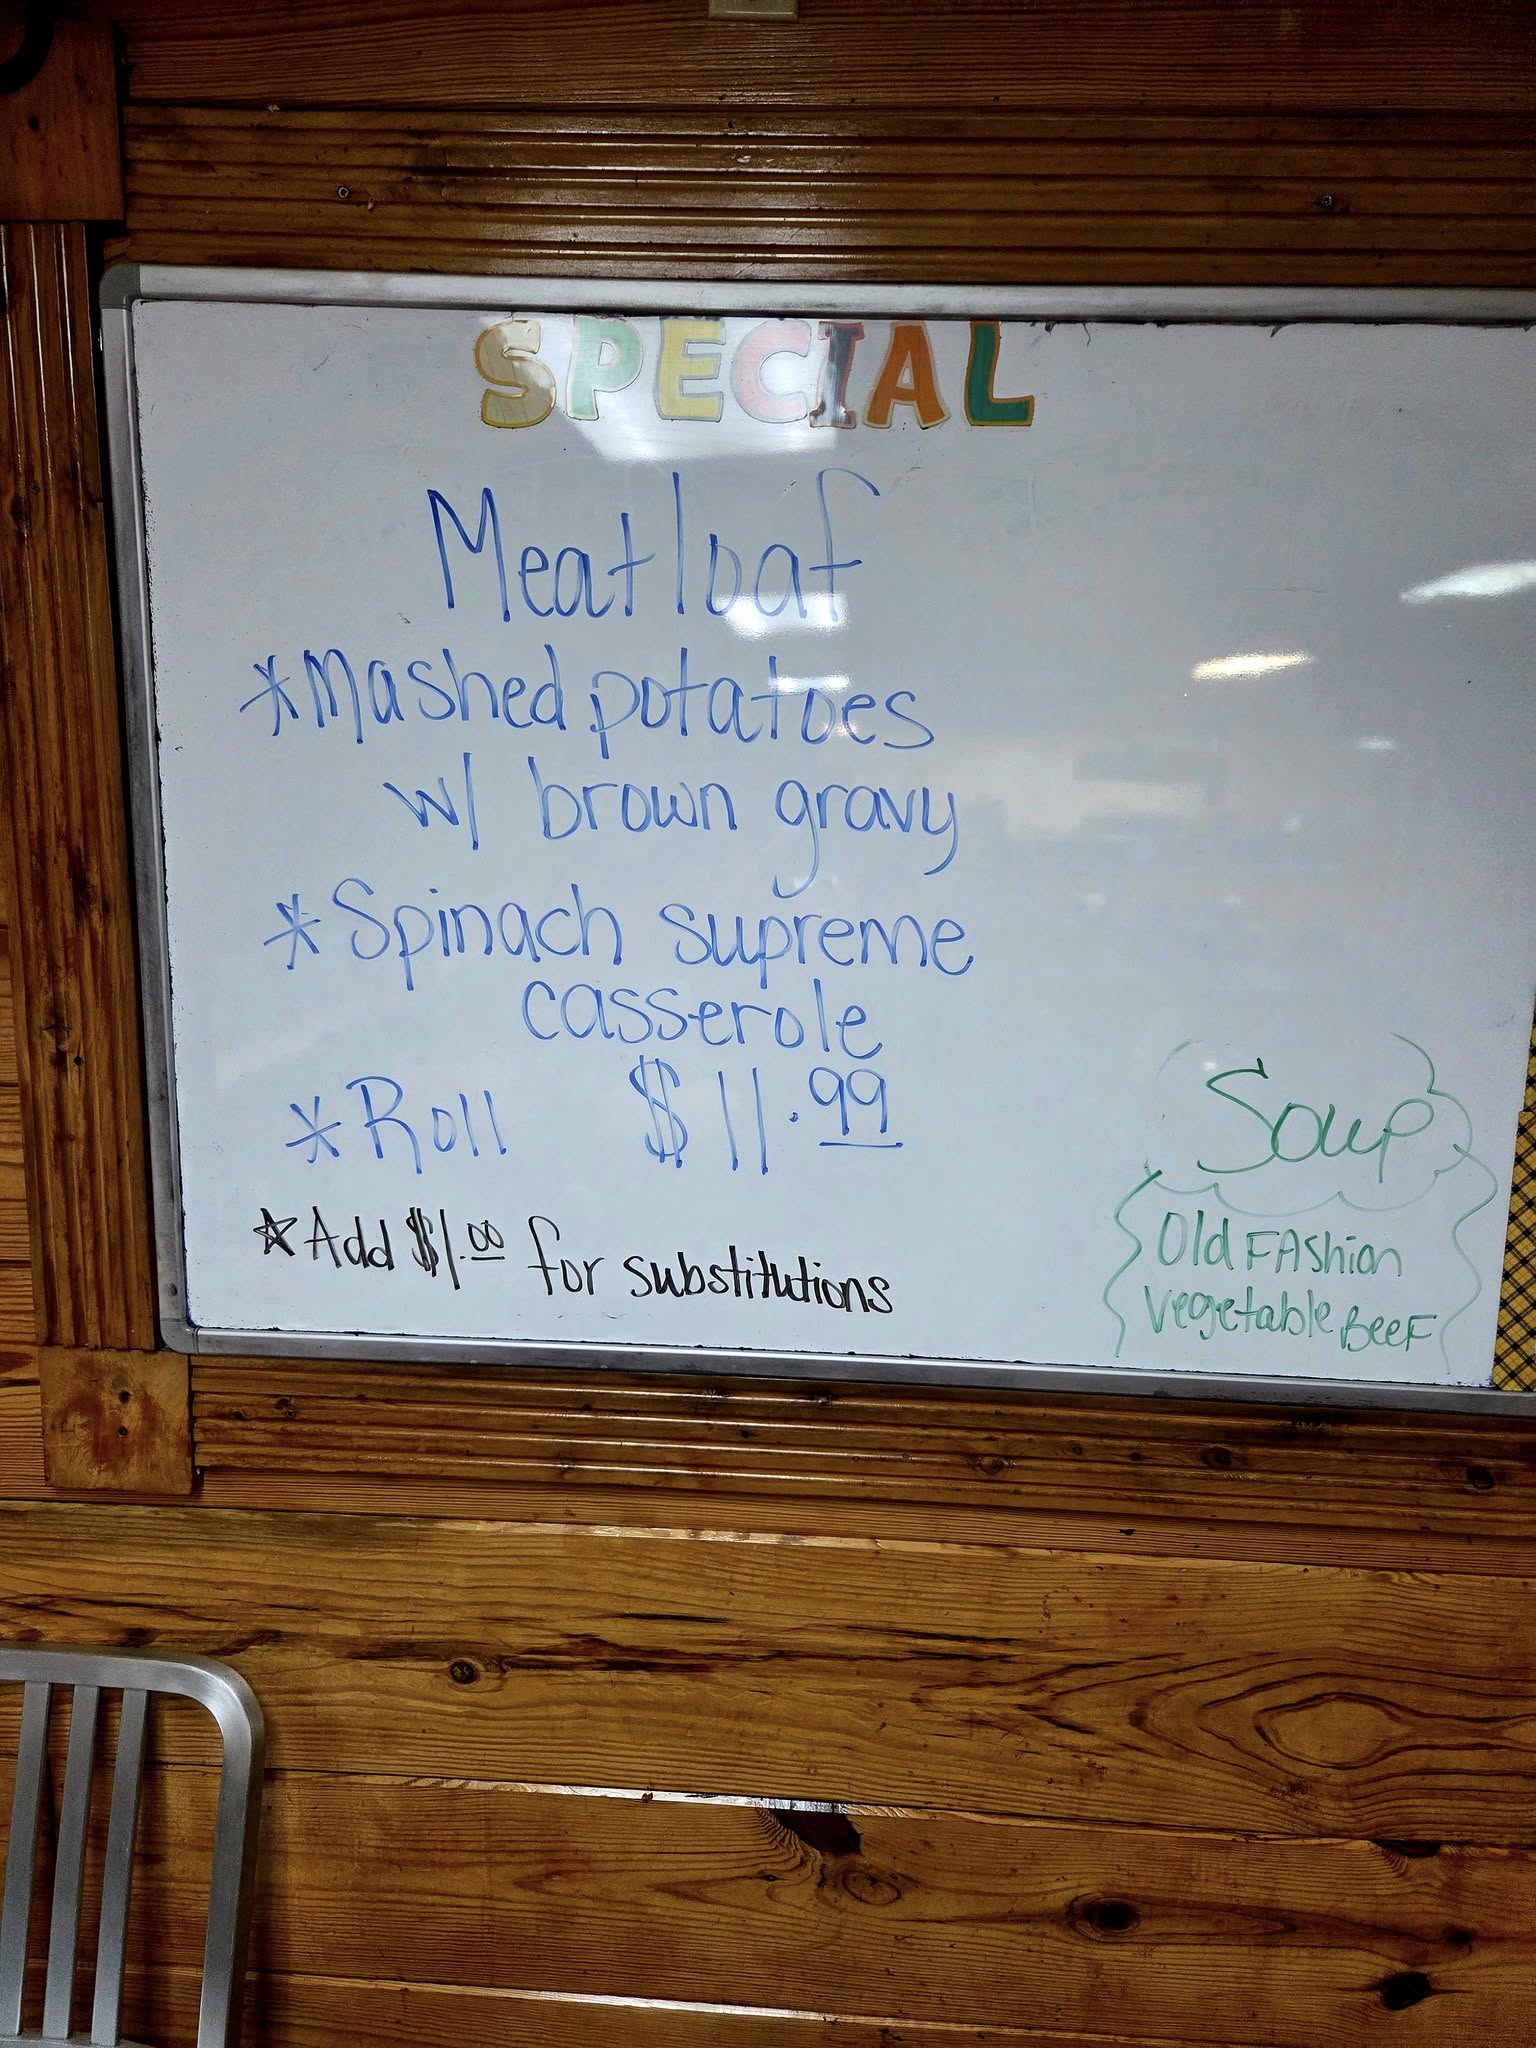 SPECIAL
Meatloaf
*Mashed potatoes
w/ brown gravy
*Spinach supreme
casserole
*Roll $11.99
☆Add $1.00 for substitutions
Soup
Old FAshion
Vegetable BeeF